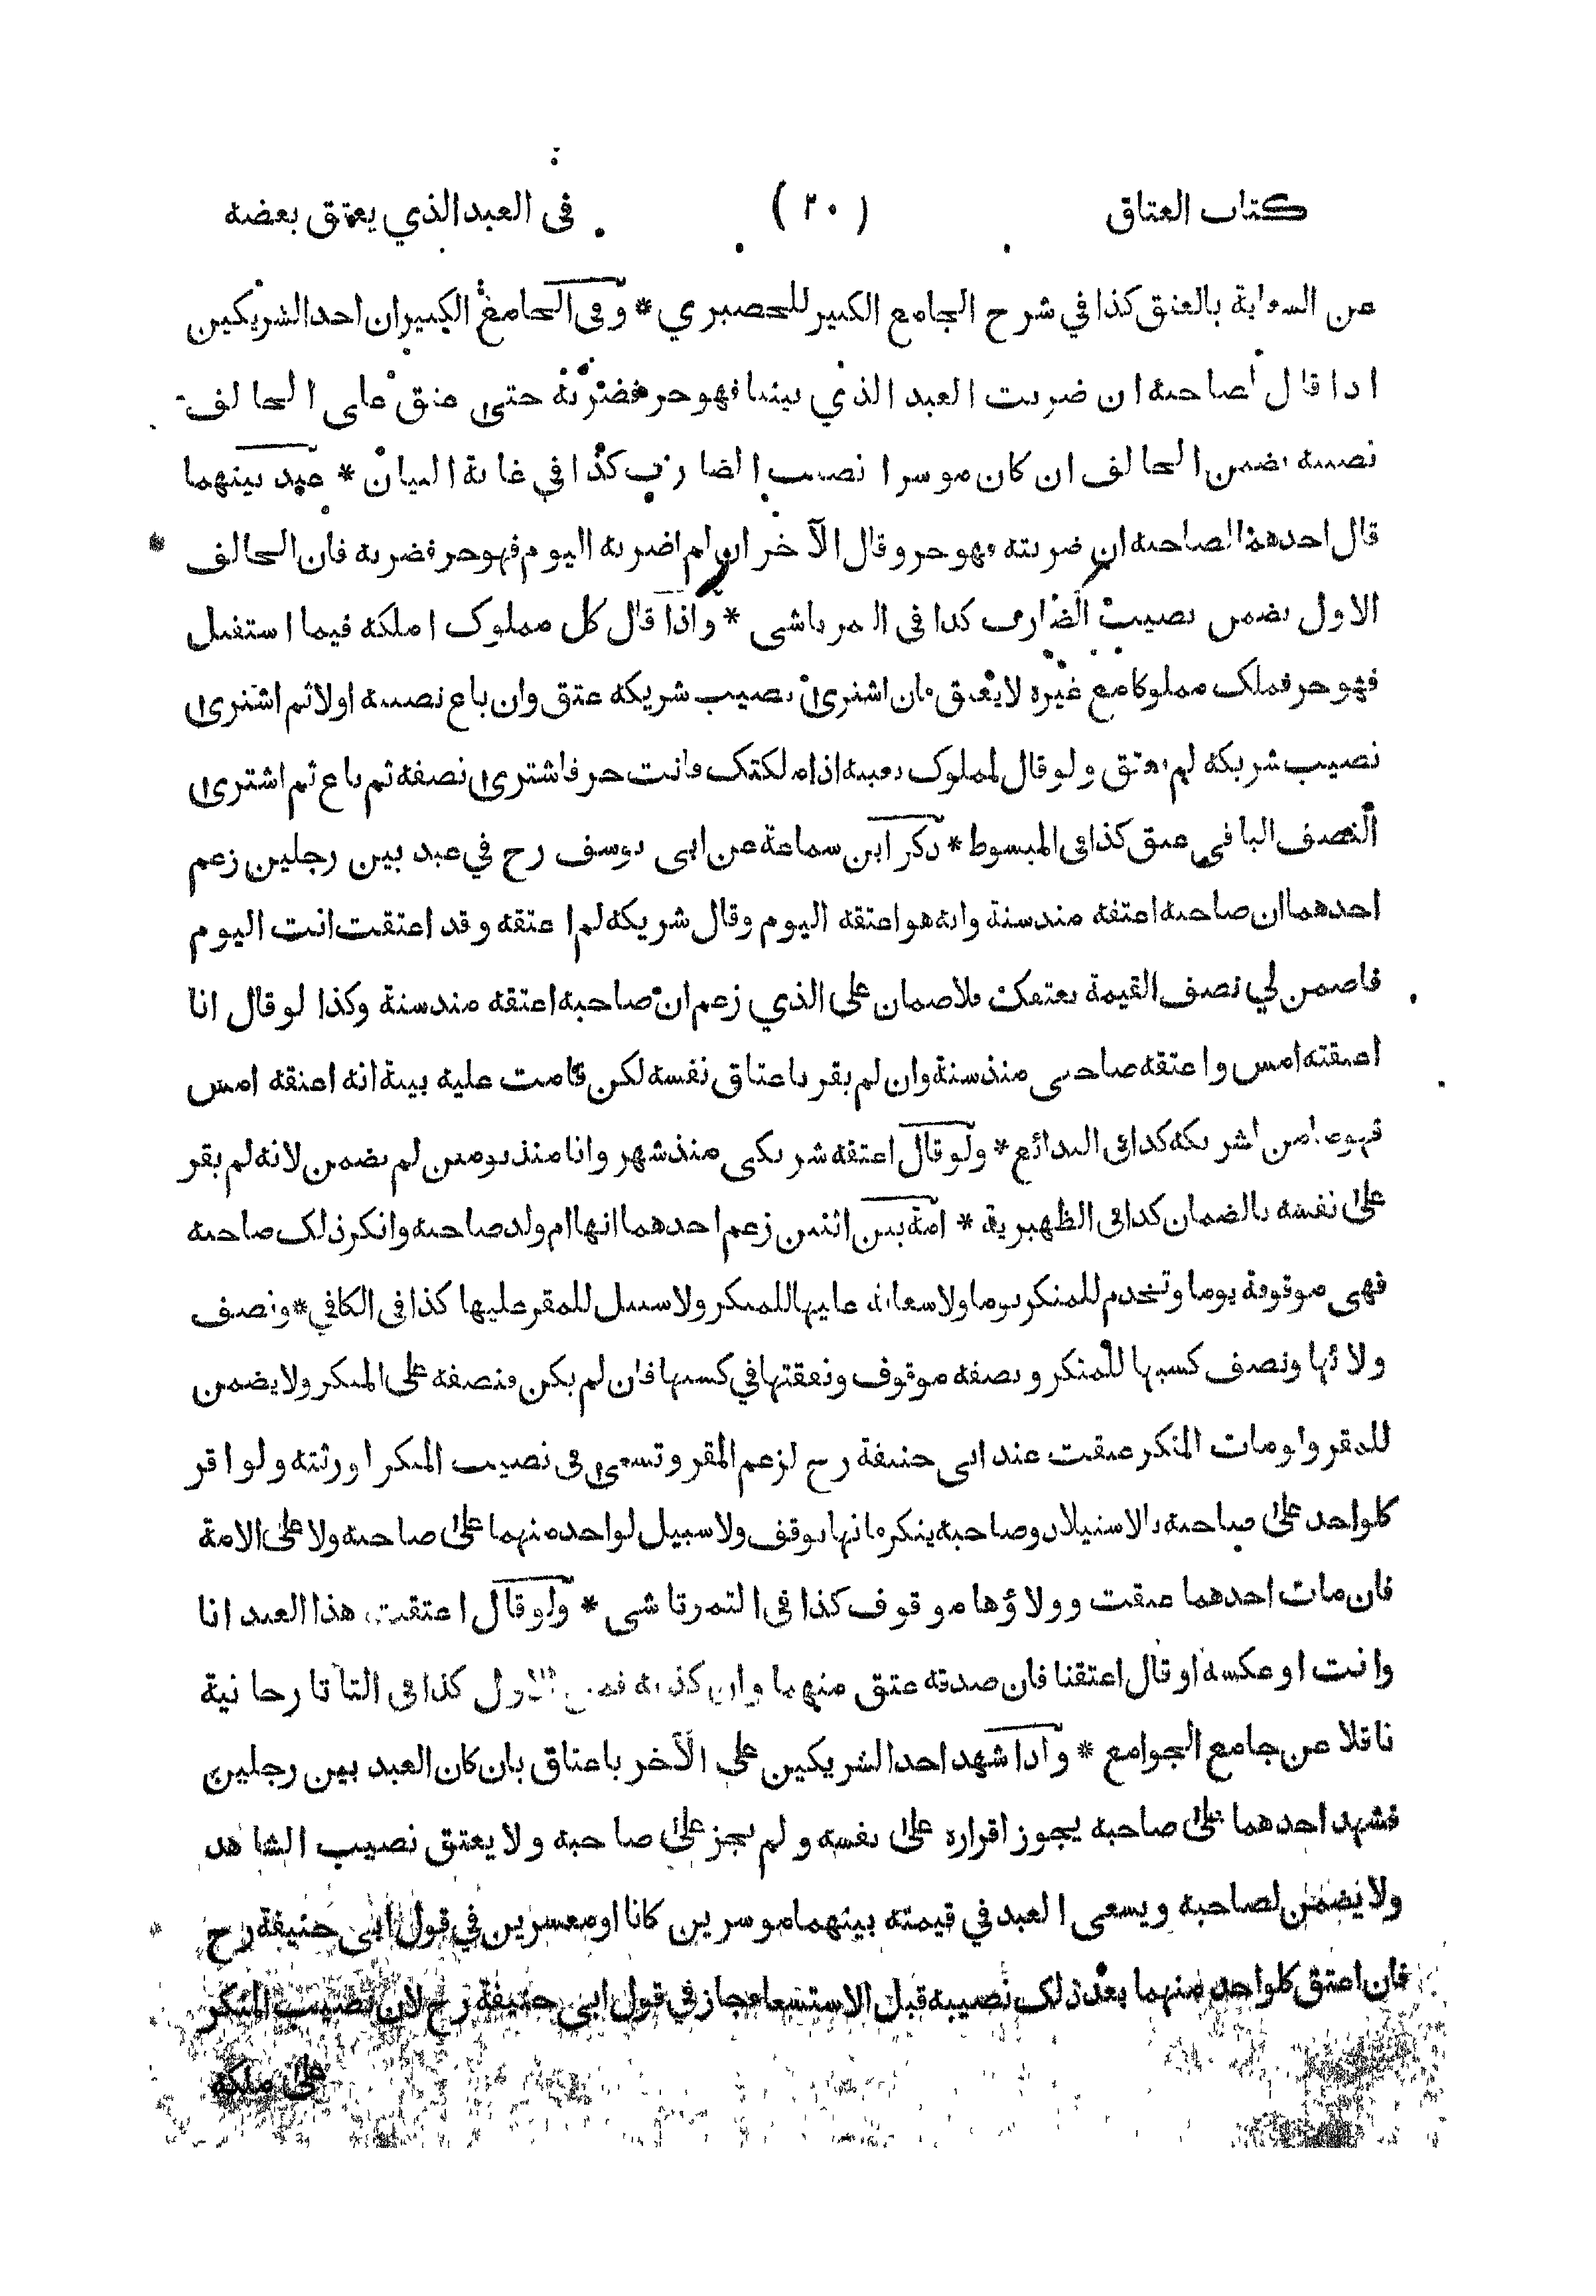 كتاب العتاق (٢٠) فى العبد الذي يعتق بعضه
عن السعاية بالعتق كذا في شرح الجامع الكبير للحصيري * وفى الجامع الكبير ان احد الشريكين
اذا قال لصاحبه ان ضربت العبد الذي بيننا فهو حر فضربه حتى عتق على الحالف
نصيبه يضمن الحالف ان كان موسرا نصيب الضارب كذا في غاية البيان * عبد بينهما
قال احدهما لصاحبه ان ضربته فهو حر وقال الآخر ان لم اضربه اليوم فهو حر فضربه فان الحالف
الاول يضمن نصيب الضارب كذا فى التمرتاشى * واذا قال كل مملوك املكه فيما استقبل
فهو حر فملك مملوكا مع غيره لا يعتق فان اشترى نصيب شريكه عتق وان باع نصيبه اولا ثم اشترى
نصيب شريكه لم يعتق ولو قال لمملوك بعينه اذا ملكتك فانت حر فاشترى نصفه ثم باع ثم اشترى
النصف الباقي عتق كذا فى المبسوط * ذكر ابن سماعة عن ابى يوسف رح في عبد بين رجلين زعم
احدهما ان صاحبه اعتقه منذ سنة وانه هو اعتقه اليوم وقال شريكه لم اعتقه وقد اعتقت انت اليوم
فاضمن لي نصف القيمة بعتقك فلا ضمان على الذي زعم ان صاحبه اعتقه منذ سنة وكذا لو قال انا
اعتقته امس واعتقه صاحبى منذ سنة وان لم يقر باعتاق نفسه لكن قامت عليه بينة انه اعتقه امس
فهو ضامن لشريكه كذا فى البدائع * ولو قال اعتقه شريكى منذ شهر وانا منذ يومين لم يضمن لانه لم يقر
على نفسه بالضمان كذا فى الظهيرية * امة بين اثنين زعم احدهما انها ام ولد صاحبه وانكر ذلك صاحبه
فهى موقوفة يوما وتخدم للمنكر يوما ولا سعاية عليها للمنكر ولا سبيل للمقر عليها كذا فى الكافي * ونصف
ولائها ونصف كسبها للمنكر ونصفه موقوف ونفقتها في كسبها فان لم يكن فنصفه على المنكر ولا يضمن
للمقر ولو مات المنكر عتقت عند ابى حنيفة رح لزعم المقر وتسعى فى نصيب المنكر لورثته ولو اقر
كل واحد على صاحبه بالاستيلاد وصاحبه ينكر فانها يوقف ولا سبيل لواحد منهما على صاحبه ولا على الامة
فان مات احدهما عتقت وولاؤها موقوف كذا فى التمرتاشى * ولو قال اعتقت هذا العبد انا
وانت او عكسه او قال اعتقنا فان صدقه عتق منهما وان كذبه فمن الاول كذا فى التاتارخانية
ناقلا عن جامع الجوامع * واذا شهد احد الشريكين على الآخر باعتاق بان كان العبد بين رجلين
فشهد احدهما على صاحبه يجوز اقراره على نفسه ولم يجز على صاحبه ولا يعتق نصيب الشاهد
ولا يضمن لصاحبه ويسعى العبد في قيمته بينهما موسرين كانا او معسرين في قول ابى حنيفة رح
فان اعتق كل واحد منهما بعد ذلك نصيبه قبل الاستسعا جاز في قول ابى حنيفة رح لان نصيب المنكر
على ملكه